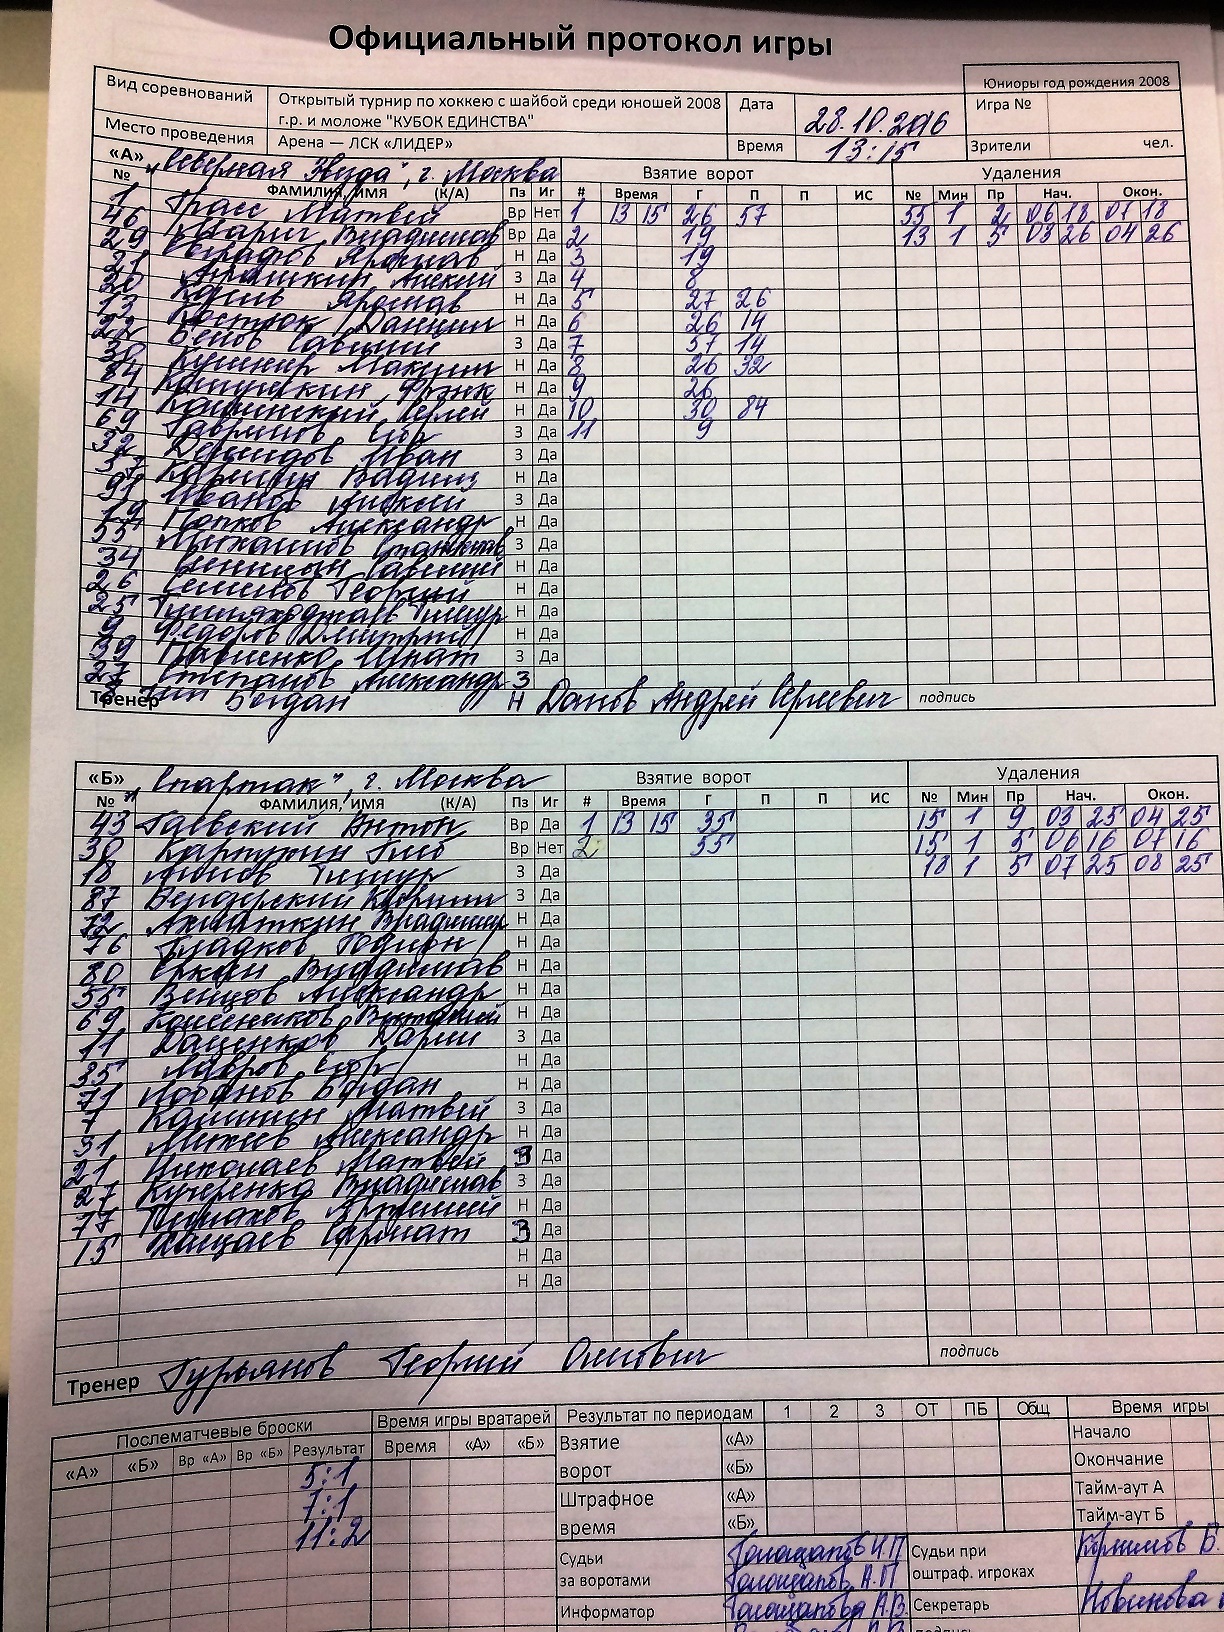 Официальный протокол игры
Юниоры год рождения 2008
Вид соревнований Открытый турнир по хоккею с шайбой среди юношей 2008 г.р. и моложе "КУБОК ЕДИНСТВА" Дата 28.10.2016 Игра №
Место проведения Арена — ЛСК «ЛИДЕР» Время 13:15 Зрители чел.
«А» „Северная Звезда", г. Москва Взятие ворот Удаления
№ ФАМИЛИЯ, ИМЯ (К/А) Пз Иг # Время Г П П ИС № Мин Пр Нач. Окон.
1 Грасс Матвей Вр Нет 1 13 15 26 57 55 1 2 06 18 07 18
46 Владислав Вр Да 2 19 13 1 5 03 26 04 26
29 Ярослав Н Да 3 19
21 Алексей З Да 4 8
20 Ярослав Н Да 5 27 26
13 Костюк Даниил Н Да 6 26 14
22 Белов Савелий З Да 7 57 14
30 Кушнир Максим Н Да 8 26 32
84 Фрэнк Н Да 9 26
14 Калинский Сергей Н Да 10 30 84
69 Гаврилов Егор З Да 11 9
32 Демидов Иван З Да
57 Вадим Н Да
91 Иванов Алексей З Да
19 Попков Александр Н Да
55 Михайлов Станислав З Да
34 Савелий Н Да
26 Семенов Георгий Н Да
25 Тимур Н Да
9 Федоров Дмитрий Н Да
39 Павленко Игнат З Да
27 Степанов Александр З
8 Богдан Н
Тренер Данов Андрей Сергеевич подпись
«Б» „Спартак", г. Москва Взятие ворот Удаления
№ ФАМИЛИЯ, ИМЯ (К/А) Пз Иг # Время Г П П ИС № Мин Пр Нач. Окон.
43 Гаевский Антон Вр Да 1 13 15 35 15 1 9 03 25 04 25
30 Карпухин Глеб Вр Нет 2 55 15 1 5 06 16 07 16
18 Тимур З Да 18 1 5 07 25 08 25
87 Бендерский Кирилл З Да
72 Владимир Н Да
76 Гладков Родион Н Да
80 Еркин Владислав Н Да
55 Венцов Александр Н Да
69 Колесников Виталий Н Да
11 Даценков Дарий З Да
35 Лавров Егор Н Да
71 Лобанов Богдан Н Да
7 Калинин Матвей З Да
31 Михеев Александр Н Да
21 Николаев Матвей З Да
27 Кучеренко Владислав З Да
77 Арсений Н Да
15 Хацаев Сармат З Да
Н Да
Н Да
Тренер Гурьянов Георгий Олегович подпись
Послематчевые броски Время игры вратарей Результат по периодам 1 2 3 ОТ ПБ Общ Время игры
«А» «Б» Вр «А» Вр «Б» Результат Время «А» «Б» Взятие ворот «А» Начало
5:1 «Б» Окончание
7:1 Штрафное время «А» Тайм-аут А
11:2 «Б» Тайм-аут Б
Судьи за воротами Голощапов И.П Судьи при оштраф. игроках Б.
Голощапов А.П
Информатор Голощапова А.В. Секретарь Новикова